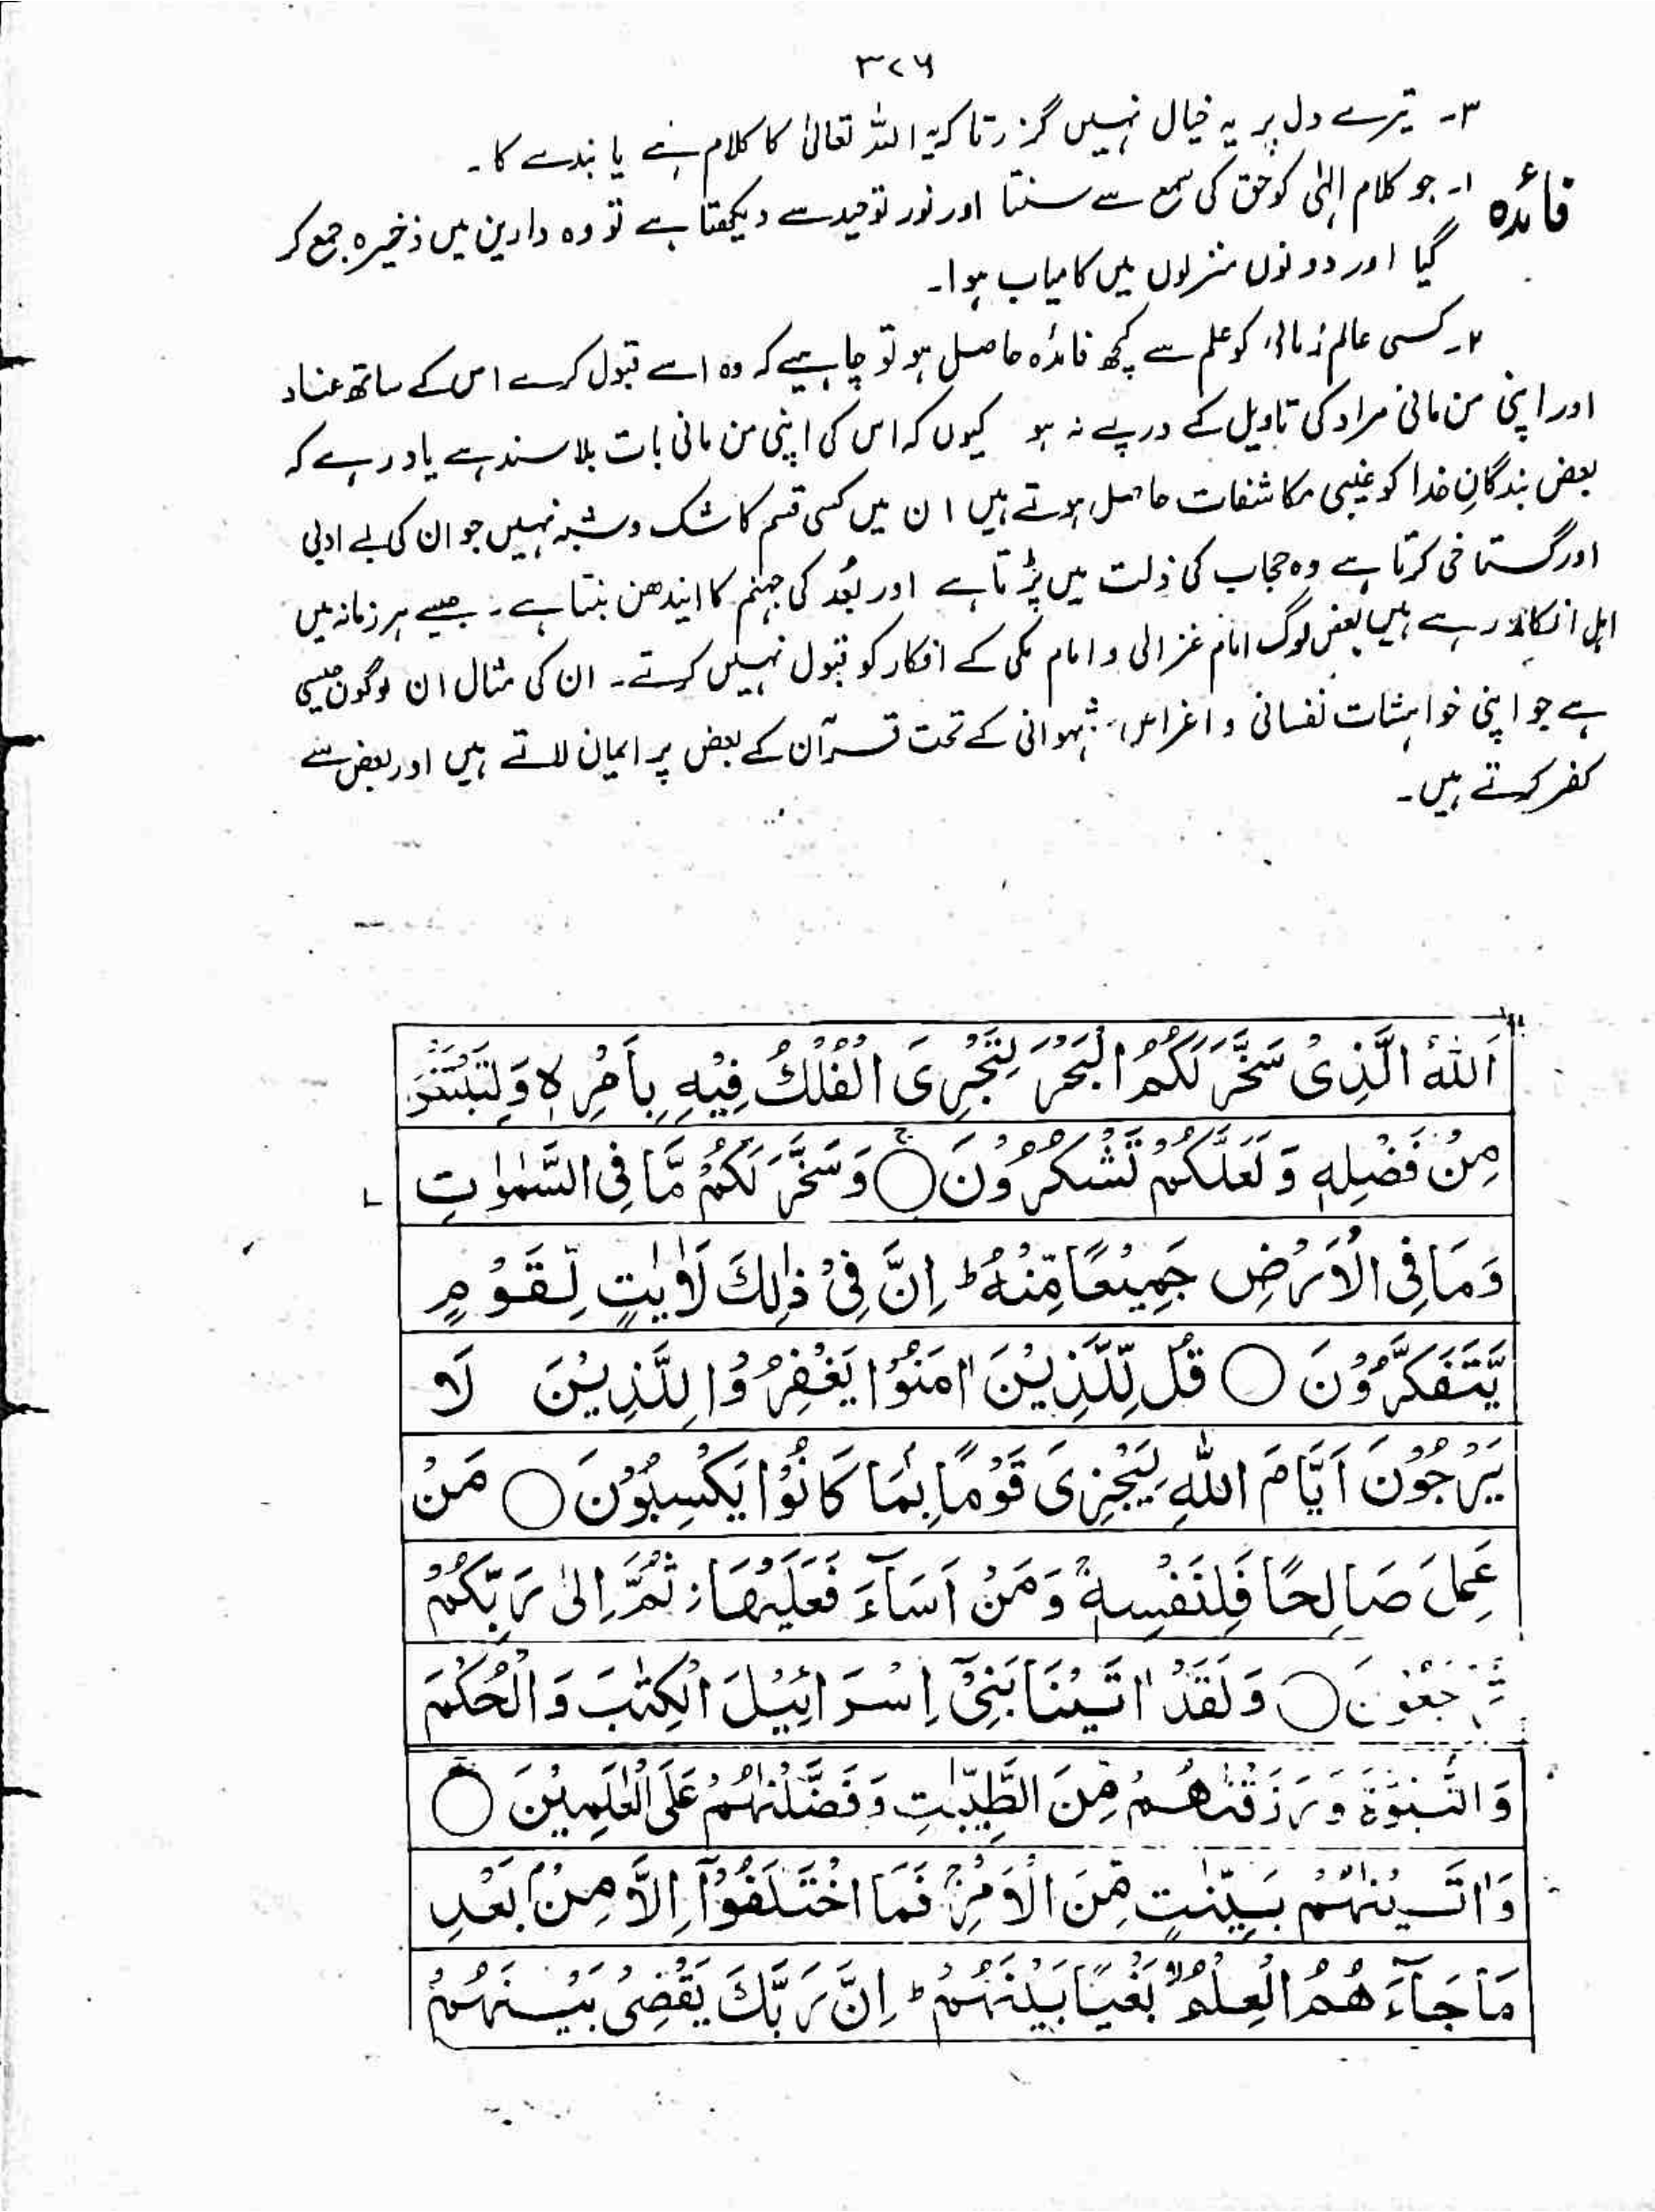 ۳۷۶
۳۔ تیرے دل پر یہ خیال نہیں گزرتا کہ یہ اللہ تعالیٰ کا کلام ہے یا بندے کا۔
فائدہ ۱۔ جو کلام الٰہی کو حق کی سمع سے سنتا اور نور توحید سے دیکھتا ہے تو وہ دارین میں ذخیرہ جمع کر
گیا اور دونوں منزلوں میں کامیاب ہوا۔
۲۔ کسی عالم زمانی کو علم سے کچھ فائدہ حاصل ہو تو چاہیے کہ وہ اسے قبول کرے اس کے ساتھ عناد
اور اپنی من مانی مراد کی تاویل کے درپے نہ ہو کیوں کہ اس کی اپنی من مانی بات بلا سند ہے یاد رہے کہ
بعض بندگانِ خدا کو غیبی مکاشفات حاصل ہوتے ہیں ان میں کسی قسم کا شک و شبہ نہیں جو ان کی بے ادبی
اور گستاخی کرتا ہے وہ حجاب کی ذلت میں پڑتا ہے اور بُعد کی جہنم کا ایندھن بنتا ہے۔ جیسے ہر زمانہ میں
اہل انکار رہے ہیں بعض لوگ امام غزالی و امام مکی کے افکار کو قبول نہیں کرتے۔ ان کی مثال ان لوگوں جیسی
ہے جو اپنی خواہشات نفسانی و اغراض شہوانی کے تحت قرآن کے بعض پر ایمان لاتے ہیں اور بعض سے
کفر کرتے ہیں۔
اَللّٰهُ الَّذِیْ سَخَّرَ لَكُمُ الْبَحْرَ لِتَجْرِیَ الْفُلْكُ فِیْهِ بِاَمْرِهٖ وَلِتَبْتَغُوْا
مِنْ فَضْلِهٖ وَ لَعَلَّكُمْ تَشْكُرُوْنَ ۚ○ وَسَخَّرَ لَكُمْ مَّا فِی السَّمٰوٰتِ
وَمَا فِی الْاَرْضِ جَمِیْعًا مِّنْهُ ؕ اِنَّ فِیْ ذٰلِكَ لَاٰیٰتٍ لِّقَوْمٍ
یَّتَفَكَّرُوْنَ ○ قُلْ لِّلَّذِیْنَ اٰمَنُوْا یَغْفِرُوْا لِلَّذِیْنَ لَا
یَرْجُوْنَ اَیَّامَ اللّٰهِ لِیَجْزِیَ قَوْمًا بِمَا كَانُوْا یَكْسِبُوْنَ ○ مَنْ
عَمِلَ صَالِحًا فَلِنَفْسِهٖ ۚ وَمَنْ اَسَآءَ فَعَلَیْهَا ز ثُمَّ اِلٰی رَبِّكُمْ
تُرْجَعُوْنَ ○ وَلَقَدْ اٰتَیْنَا بَنِیْۤ اِسْرَآئِیْلَ الْكِتٰبَ وَالْحُكْمَ
وَالنُّبُوَّةَ وَرَزَقْنٰهُمْ مِّنَ الطَّیِّبٰتِ وَفَضَّلْنٰهُمْ عَلَی الْعٰلَمِیْنَ ۚ○
وَاٰتَیْنٰهُمْ بَیِّنٰتٍ مِّنَ الْاَمْرِ ۚ فَمَا اخْتَلَفُوْۤا اِلَّا مِنْۢ بَعْدِ
مَا جَآءَهُمُ الْعِلْمُ ۙ بَغْیًۢا بَیْنَهُمْ ؕ اِنَّ رَبَّكَ یَقْضِیْ بَیْنَهُمْ